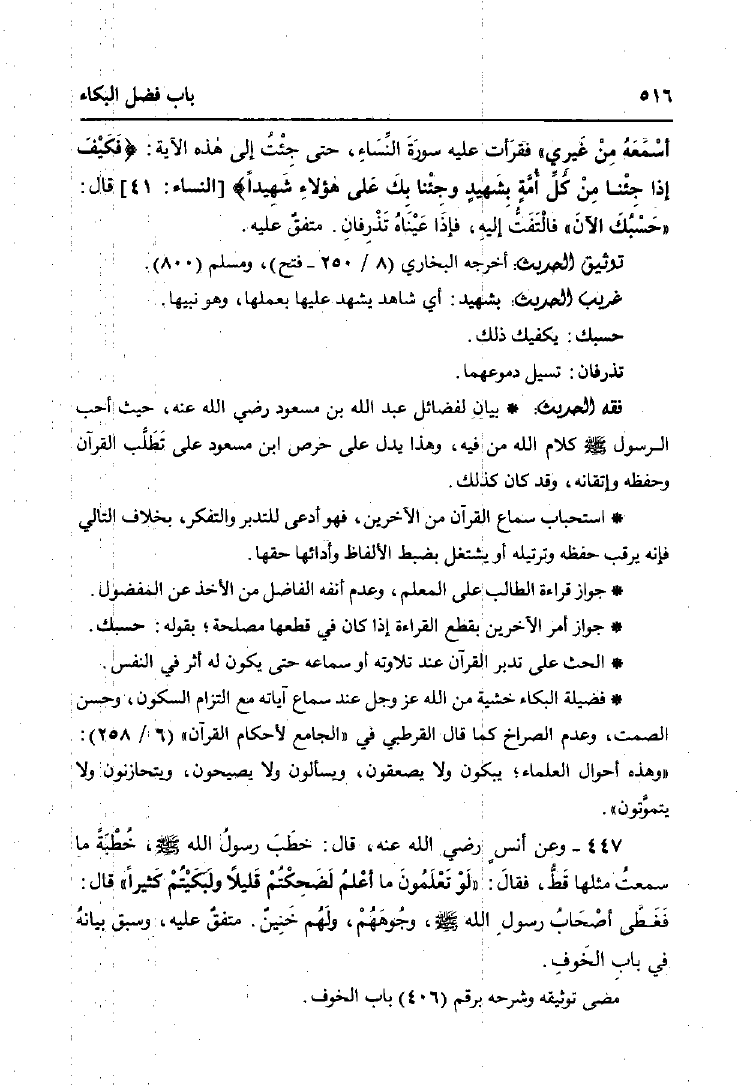 ٥١٦ باب فضل البكاء
أسْمَعَهُ مِنْ غَيري» فقرَأت عليه سورةَ النِّسَاءِ، حتى جِئْتُ إلى هٰذه الآية: ﴿فَكَيْفَ
إذا جِئْنـا مِنْ كُلِّ أُمَّةٍ بِشَهيدٍ وجئْنا بِكَ عَلى هٰؤلاءِ شَهيداً﴾ [النساء: ٤١] قال:
«حَسْبُكَ الآنَ» فالْتَفَتُّ إليهِ، فإذَا عَيْنَاهُ تَذْرِفانِ. متفقٌ عليه.
توثيق الحديث: أخرجه البخاري (٨ / ٢٥٠ ـ فتح)، ومسلم (٨٠٠).
غريب الحديث: بشهيد: أي شاهد يشهد عليها بعملها، وهو نبيها.
حسبك: يكفيك ذلك.
تذرفان: تسيل دموعهما.
فقه الحديث: * بيان لفضائل عبد الله بن مسعود رضي الله عنه، حيث أحب
الـرسول ﷺ كلام الله من فيه، وهذا يدل على حرص ابن مسعود على تَطَلُّب القرآن
وحفظه وإتقانه، وقد كان كذلك.
* استحباب سماع القرآن من الآخرين، فهو أدعى للتدبر والتفكر، بخلاف التالي
فإنه يرقب حفظه وترتيله أو يشتغل بضبط الألفاظ وأدائها حقها.
* جواز قراءة الطالب على المعلم، وعدم أنفه الفاضل من الأخذ عن المفضول.
* جواز أمر الآخرين بقطع القراءة إذا كان في قطعها مصلحة؛ بقوله: حسبك.
* الحث على تدبر القرآن عند تلاوته أو سماعه حتى يكون له أثر في النفس.
* فضيلة البكاء خشية من الله عز وجل عند سماع آياته مع التزام السكون، وحسن
الصمت، وعدم الصراخ كما قال القرطبي في «الجامع لأحكام القرآن» (٦ / ٢٥٨):
«وهذه أحوال العلماء؛ يبكون ولا يصعقون، ويسألون ولا يصيحون، ويتحازنون ولا
يتموَّتون».
٤٤٧ ـ وعن أنسٍ رضي الله عنه، قال: خطَبَ رسولُ الله ﷺ، خُطْبَةً ما
سمعتُ مثلها قَطُّ، فقالَ: «لَوْ تَعْلَمُونَ ما أعْلمُ لَضَحِكْتُمْ قَليلاً ولَبَكَيْتُمْ كَثيراً» قال:
فَغَـطَّى أصْحَابُ رسول الله ﷺ، وجُوهَهُمْ، ولَهُم خَنِينٌ. متفقٌ عليه، وسبق بيانهُ
في بابِ الخَوفِ.
مضى توثيقه وشرحه برقم (٤٠٦) باب الخوف.